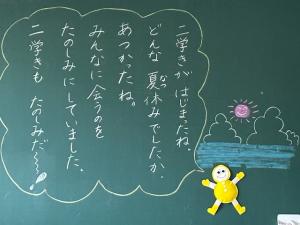 二学きが はじまったね。
どんな 夏休みでしたか。
なつ
あつかったね。
みんなに会うのを
たのしみにしていました。
二学きも たのしみだ〜〜!